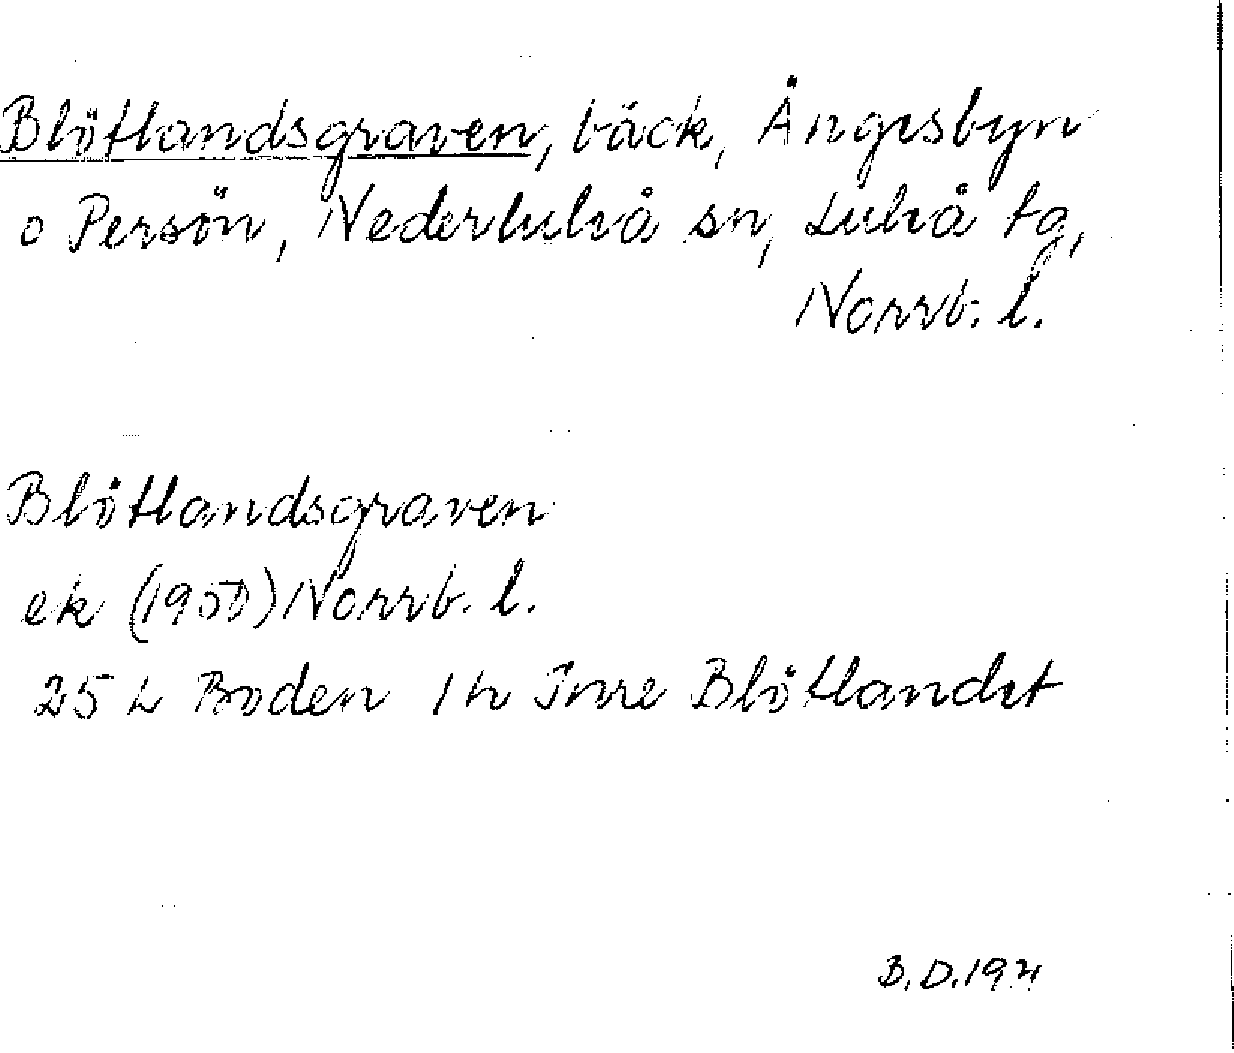 Blötlandsgraven, bäck, Ängesbyn
o Persön, Nederluleå sn, Luleå tg,
Norrb. l.
Blötlandsgraven
ek (1950) Norrb. l.
25 L Boden 1h Inre Blötlandet
B.D.